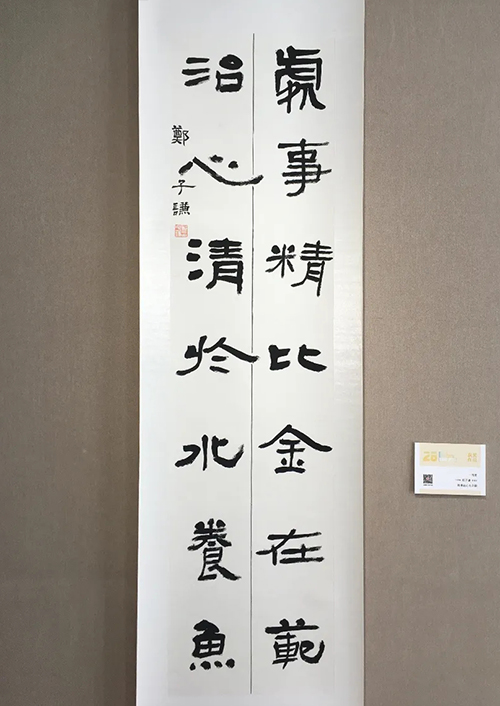 處事精比金在範
治心清於水養魚
鄭子謙